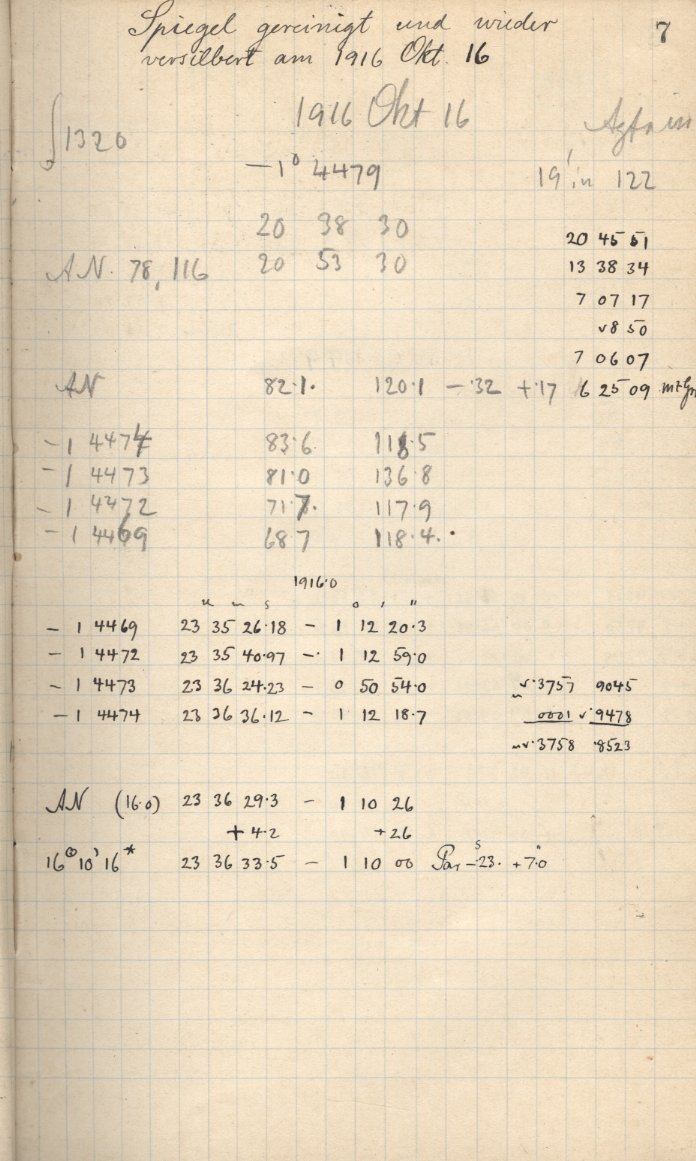 Spiegel gereinigt und wieder 7
versilbert am 1916 Okt. 16
1916 Okt 16
1320
-1° 4479 19' in 122
20 38 30
20 45 51
AN. 78, 116 20 53 30 13 38 34
7 07 17
8 50
7 06 07
AN 82.1. 120.1 -.32 +.17 6 25 09
-1 4474 83.6 118.5
-1 4473 81.0 136.8
-1 4472 71.7. 117.9
-1 4469 68.7 118.4.
1916.0
° ' "
-1 4469 23 35 26.18 - 1 12 20.3
-1 4472 23 35 40.97 - 1 12 59.0
-1 4473 23 36 24.23 - 0 50 54.0 .3757 9045
-1 4474 23 36 36.12 - 1 12 18.7 0001 .9478
.3758 .8523
AN (16.0) 23 36 29.3 - 1 10 26
+4.2 +26
16 10 16* 23 36 33.5 - 1 10 00 Par -.23 +7.0